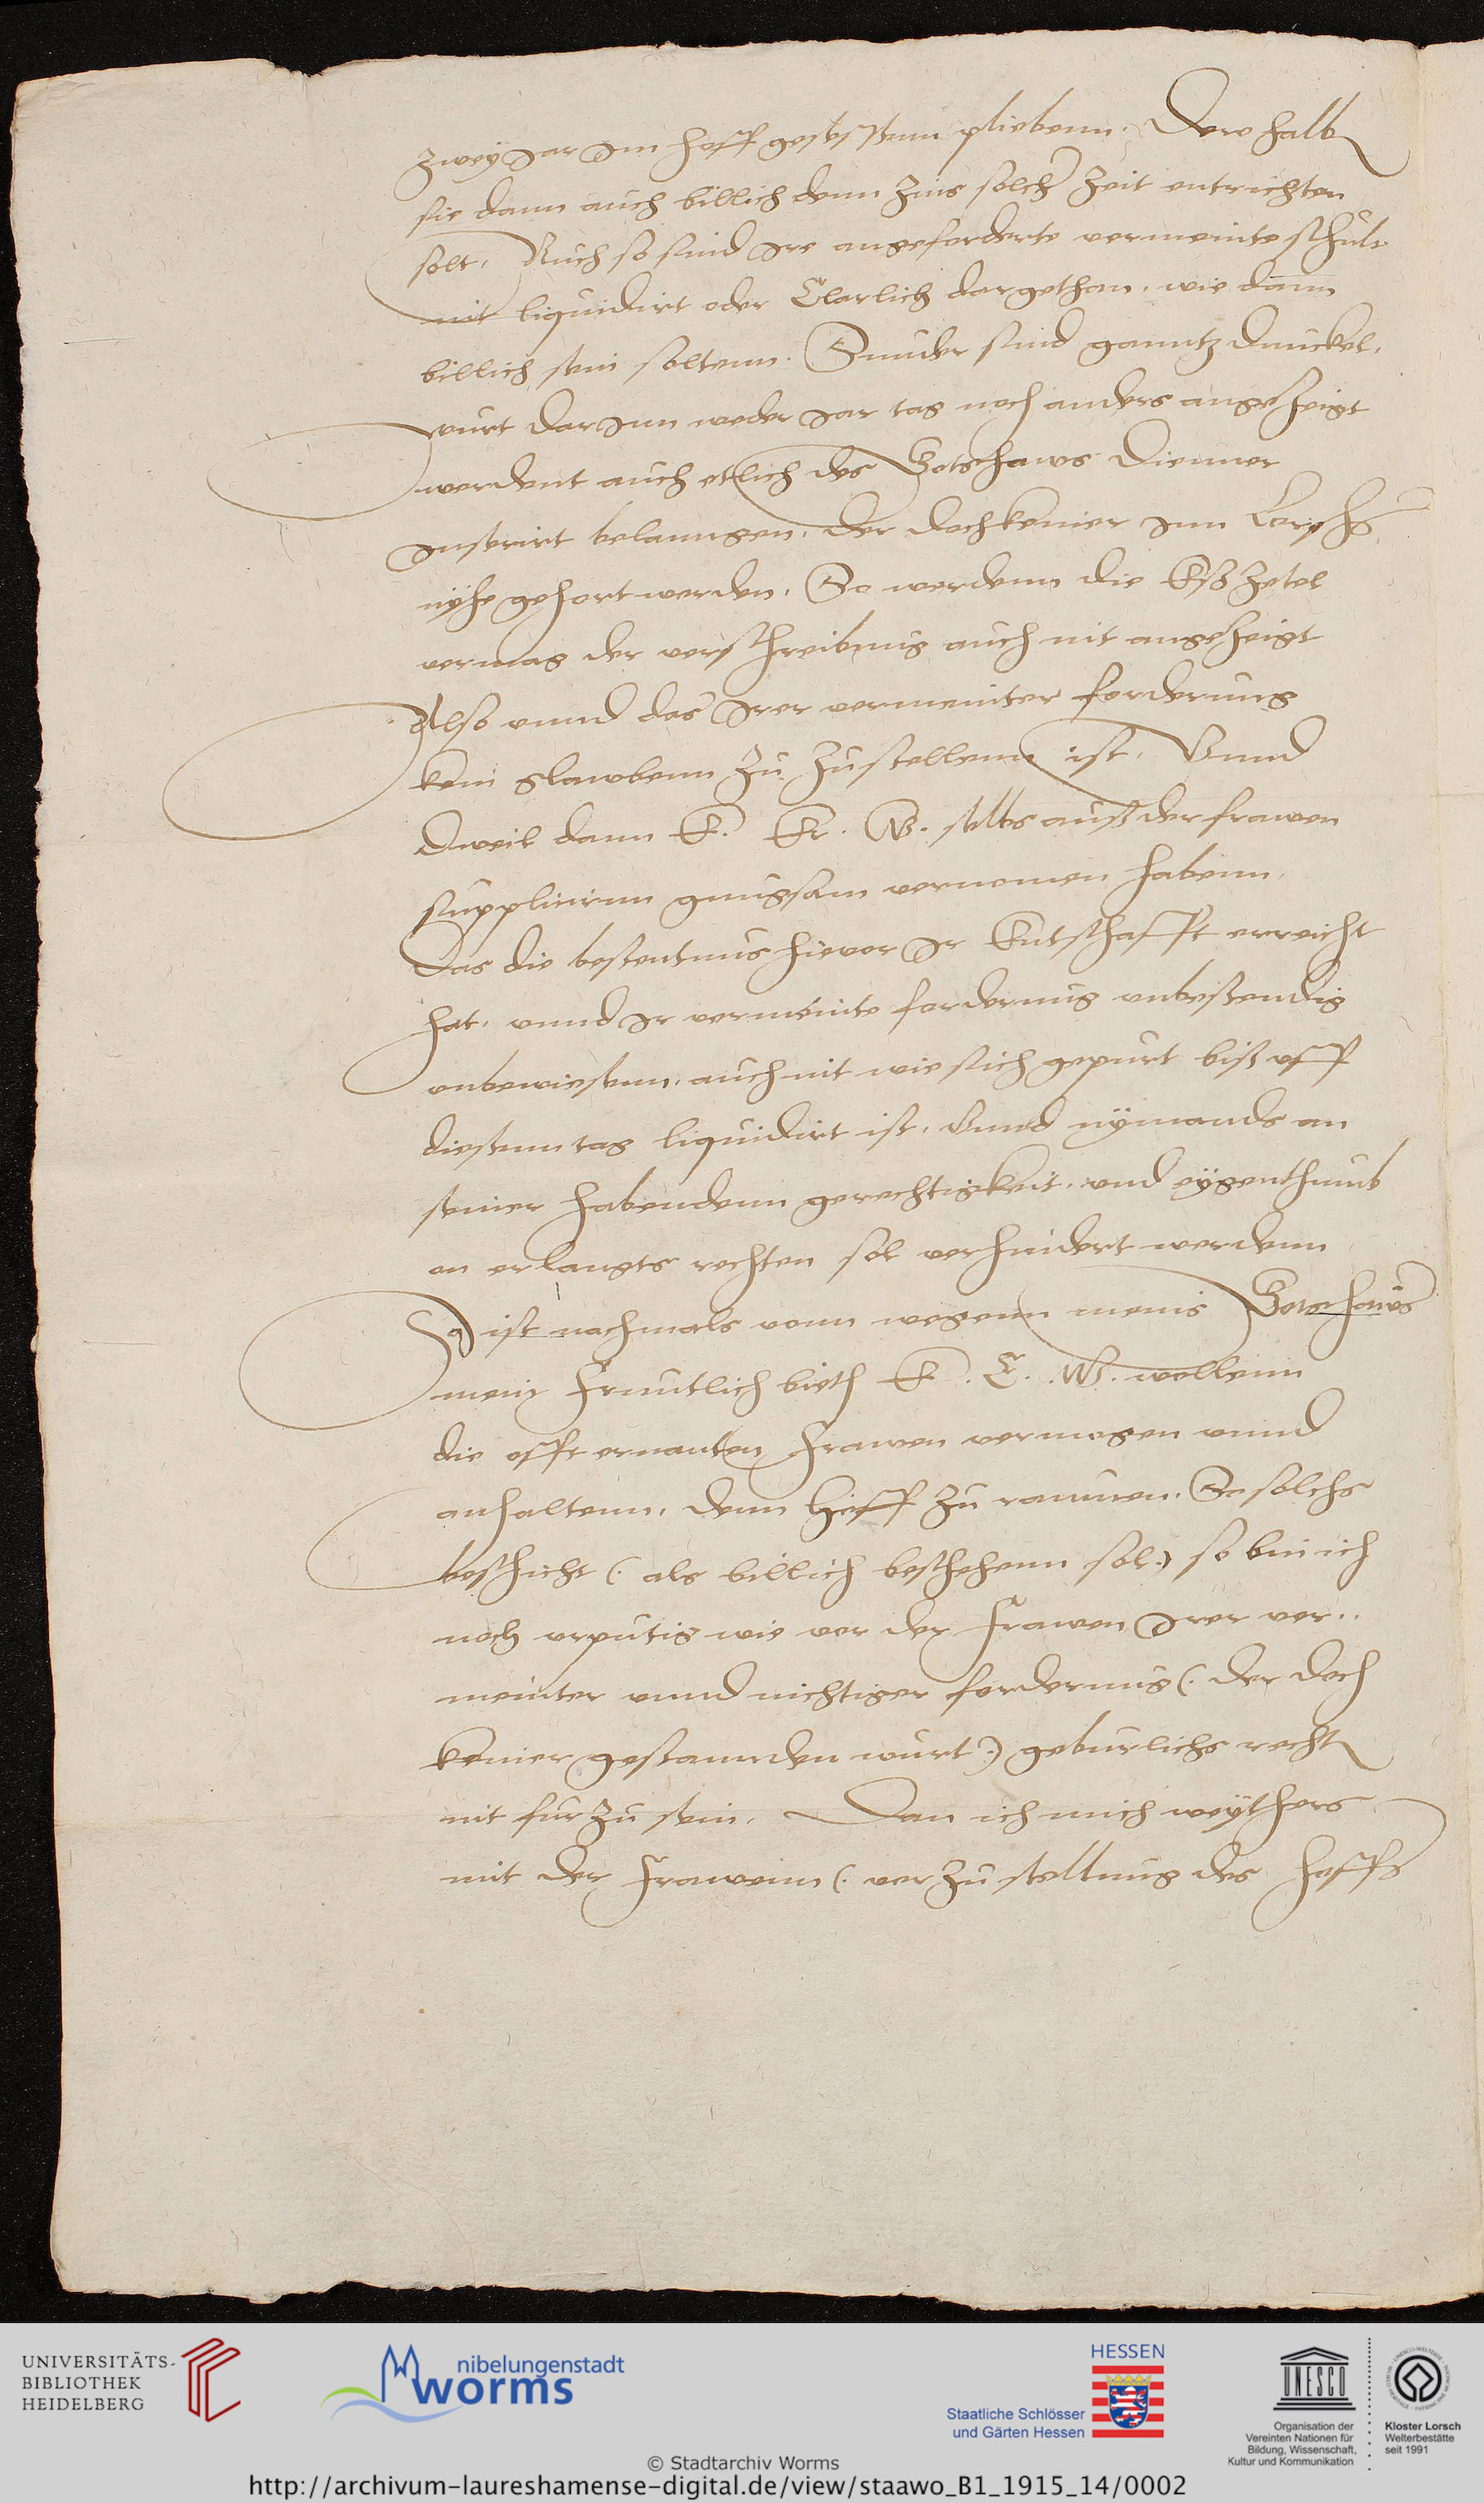 zwey Jar Im hoff gesessenn pliebenn. Derohalb
sie dann auch billich denn zins solcher zeit entrichten
solt. Auch so sind Ire angeforderte vermeinte schult
nit liquidirt oder Clarlich dargethan, wie dann
billich sein soltenn. Sunder sind ganntz dunckel,
wurt darInn weder Jar tag noch anders angezeigt
werdent auch etlich des Gotshaws Dienner
Inserirt belanngen, der doch keiner Inn Lorsch
nyhe gehort werden. So werdenn die zetel
vermag der verschreibung auch nit angezeigt
Also vnnd das Irer vermeinter forderung
kein glawbenn zu zustellenn ist. Vnnd
Dweil dann E. Er. W. selbs auß der frawen
supplicirnn gnugsam vernomen habenn,
Das die bestentnus hievor Ir Entschafft erreicht
hat, vnnd Ir vermeinte forderung vnbestendig
vnbewiesenn, auch nit wie sich gepurt biß vff
diesenn tag liquidirt ist. Vnnd nymands an
seiner habendenn gerechtigkeit, vnd eygenthumb
on erlangts rechten sol verhindert werdenn
So ist nachmals vonn wegenn meins Gotshaws
mein fruntlich bieth E. E. W. wellenn
die offt ernanten frawen vermogen vnnd
anhaltenn, denn Hoff zu raumen. So solchs
beschicht (. als billich beschehenn sol.) so bin ich
noch vrputig wie vor der frawen Irer ver..
meinter vnnd nichtiger forderung (. der doch
keiner gestannden wurt.) geburlichs recht
nit fur zu sein. Dan ich mich weythers
mit der frawenn (. vor zu stellung des hoffs
UNIVERSITÄTS-
BIBLIOTHEK
HEIDELBERG
nibelungenstadt
worms
HESSEN
Staatliche Schlösser
und Gärten Hessen
UNESCO
Organisation der
Vereinten Nationen für
Bildung, Wissenschaft,
Kultur und Kommunikation
Kloster Lorsch
Welterbestätte
seit 1991
© Stadtarchiv Worms
http://archivum-laureshamense-digital.de/view/staawo_B1_1915_14/0002